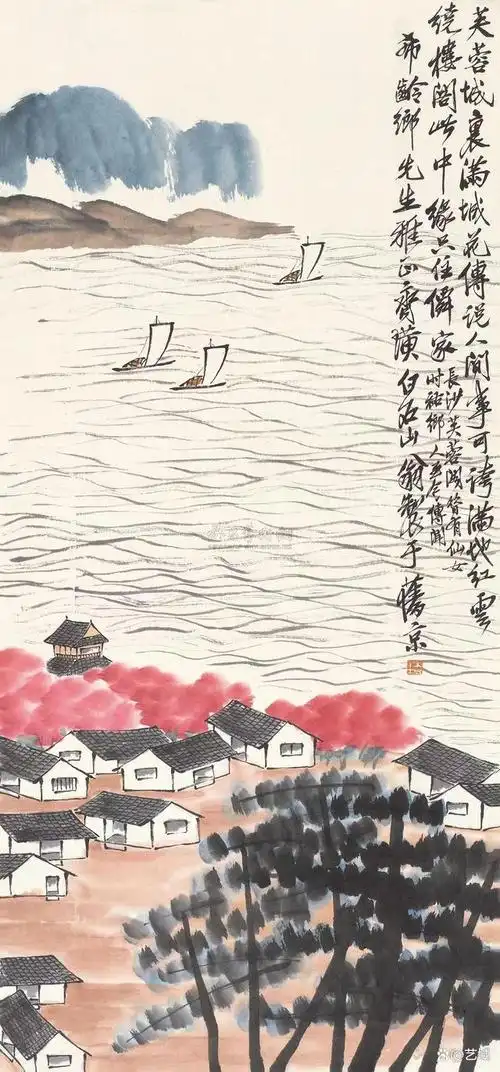 芙蓉城裏滿城花傳說人間事可誇滿地紅雲
繞樓閣此中緣只住僊家
長沙芙蓉閣曾有仙女
時鄉人至今傳聞
希齡鄉先生雅正齊璜白石山翁製于舊京